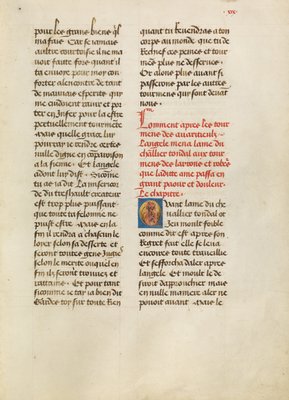 xix
pour les grans biens quil
ma fais Car se jamais
aultre courtoisie il ne ma
voit faite fors quant il
ta envoie pour moy con
forter alencontre de tant
de mauvais esperite qui
me cuident ravir et por
ter en Infer pour la estre
perpetuellement tourmente
mais quelle grace luy
pourray je rendre certes
nulle digne en comparoison
a la sienne Et langele
adont luy dist
tu as
De la misericor
de du tres hault createur
est trop plus puissant
que toute ta felonnie ne
puist estre mais en la
fin il rendra a chascun le
loyer selon sa desserte et
seront toutes gens Jugies
selon le merite ouquel en
fin ilz seront trouvez et
Et pour tant
sicomme je tay ja bien dit
Garde toy sur toute Rien
quant tu revendras a ton
corps au monde que tu de
ces peines et tour
mens plus ne dessernes
Et alons plus avant si
passerons par les autres
tourmens qui sont devant
nous
Comment apres les tour
mens des avaricieux
Langele mena lame du
chevallier tondal aux tour
mens des larrons et robeurs
que ladite ame passa en
grant paour et douleur
Le chapitre
Quant lame du che
vallier tondal eut
ieu moult foible
comme dit est apres son
Regret fait elle se leva
encores toute travaillie
Et sefforcha daler apres
langele Et moult se de
siroit dapprochier mais
en nulle maniere aler ne
pouoit avant mais le